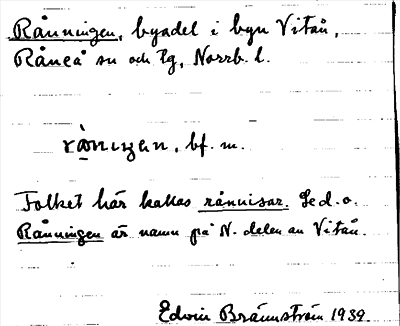 Rånningen, byadel i byn Vitån,
Råneå sn och tg, Norrb. l.
rå̀niŋən, bf. m.
Folket här kallas rånnisar. Se d. o.
Rånningen är namn på N. delen av Vitån.
Edvin Brännström 1939.